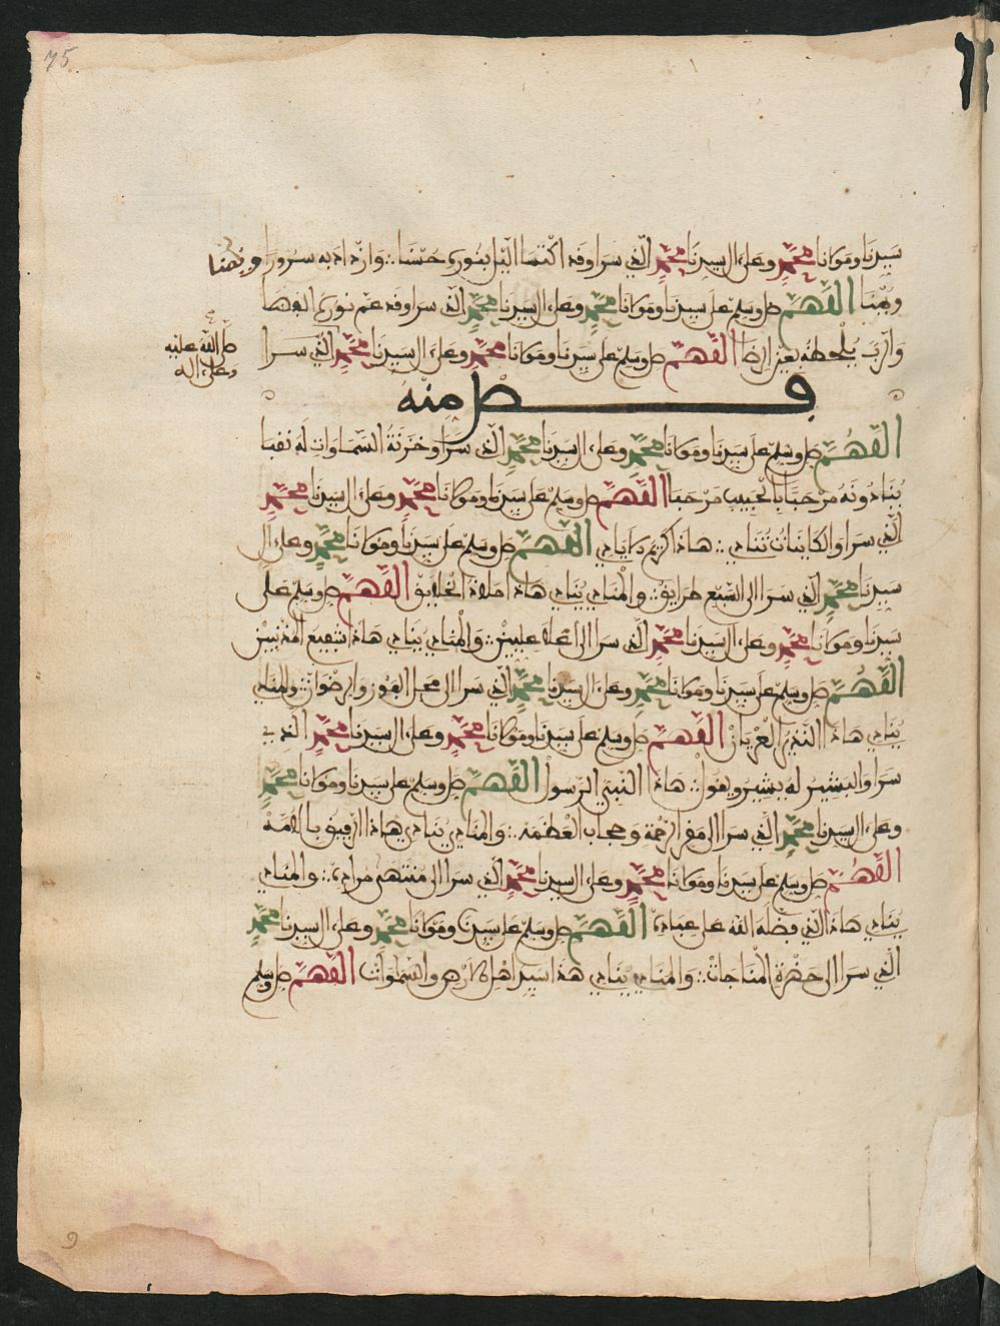 75
سيدنا ومولانا محمد وعلى ال سيدنا محمد الذي سرا وقد اكتسا اليل بنوره حسنا وازداد به سرورا و
وهنا اللهم صل وسلم على سيدنا ومولانا محمد وعلى ال سيدنا محمد الذي سرا وقد عم نوره الفضا
والرب يلحظه بعين الرضا اللهم صل وسلم على سيدنا ومولانا محمد وعلى ال سيدنا محمد الذي سرا
صلى الله عليه
وعلى اله
فصل منه
اللهم صل وسلم على سيدنا ومولانا محمد وعلى ال سيدنا محمد الذي سرا وخزنة السماوات له
ينادونه مرحبا يا حبيب مرحبا اللهم صل وسلم على سيدنا ومولانا محمد وعلى ال سيدنا محمد
الذي سرا والكاينات تنادي هاذا كريم اللهم صل وسلم على سيدنا ومولانا محمد وعلى ال
سيدنا محمد الذي سرا الى السبع طرايق والمنادي ينادي هاذا الخلايق اللهم صل وسلم على
سيدنا ومولانا محمد وعلى ال سيدنا محمد الذي سرا الى اعلا عليين والمنادي ينادي هاذا شفيع المذنبين
اللهم صل وسلم على سيدنا ومولانا محمد وعلى ال سيدنا محمد الذي سرا الى محل الفوز والرضوان والمنادي
ينادي هاذا النذير العريان اللهم صل وسلم على سيدنا ومولانا محمد وعلى ال سيدنا محمد الذي
سرا والبشير له يشير ويقول هاذا النبي الرسول اللهم صل وسلم على سيدنا ومولانا محمد
وعلى ال سيدنا محمد الذي سرا الى مقر الرحمة وحجاب العظمة والمنادي ينادي هاذا الرفيق بالامة
اللهم صل وسلم على سيدنا ومولانا محمد وعلى ال سيدنا محمد الذي سرا الى منتهى مراده والمنادي
ينادي هاذا الذي فضله الله على عباده اللهم صل وسلم على سيدنا ومولانا محمد وعلى ال سيدنا محمد
الذي سرا الى حضرة المناجات والمنادي ينادي هذا سيد اهل الارض والسماوات اللهم صل وسلم